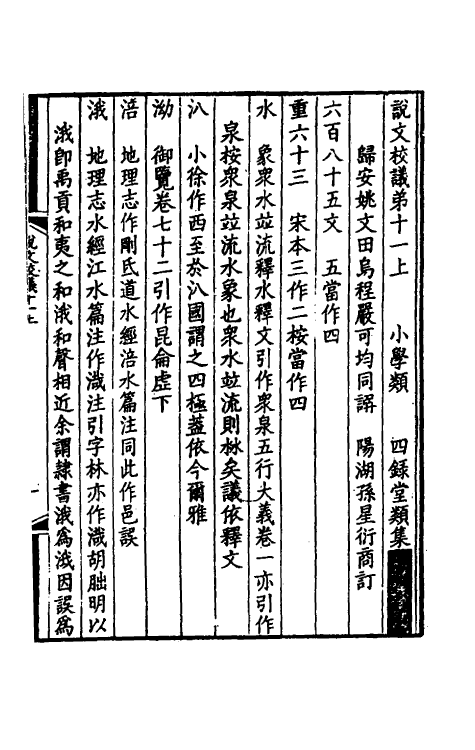 說文校議第十一上　小學類　四錄堂類集
歸安姚文田烏程嚴可均同譔　陽湖孫星衍商訂
六百八十五文　五當作四
重六十三　宋本三作二桉當作四
水　象衆水竝流釋水釋文引作衆泉五行大義卷一亦引作
泉桉衆泉竝流水象也衆水竝流則沝矣議依釋文
汃　小徐作西至於汃國謂之四極蓋依今爾雅
泑　御覽卷七十二引作昆侖虛下
涪　地理志作剛氐道水經涪水篇注同此作邑誤
涐　地理志水經江水篇注作渽注引字林亦作渽胡朏明以
涐卽禹貢和夷之和涐和聲相近余謂隸書涐爲渽因誤爲
說文校議十一上
一